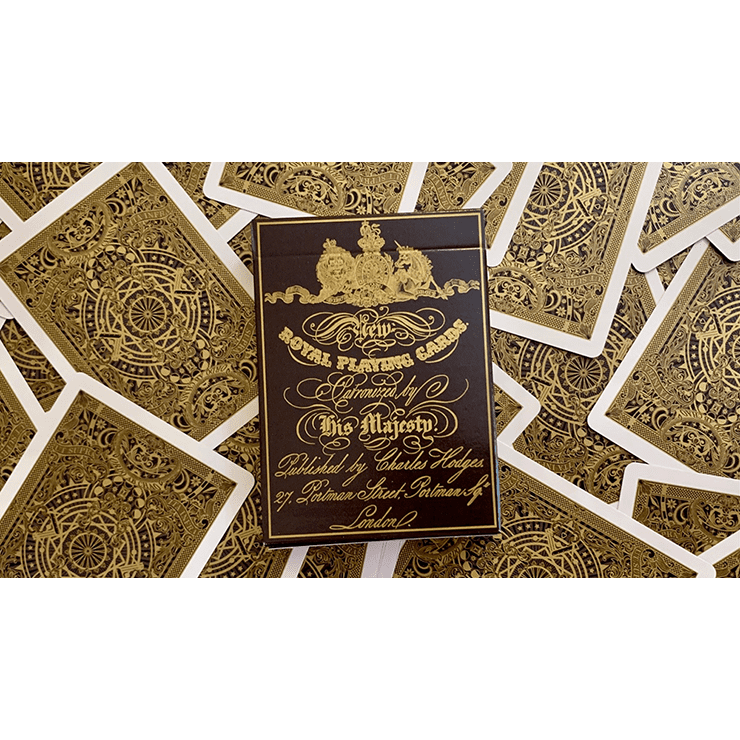 New
ROYAL PLAYING CARDS.
Patronized by
His Majesty.
Published by Charles Hodges.
27, Portman Street Portman Sq.
London.